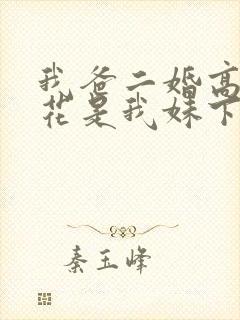 我爸二婚高
花是我妹下
秦玉峰